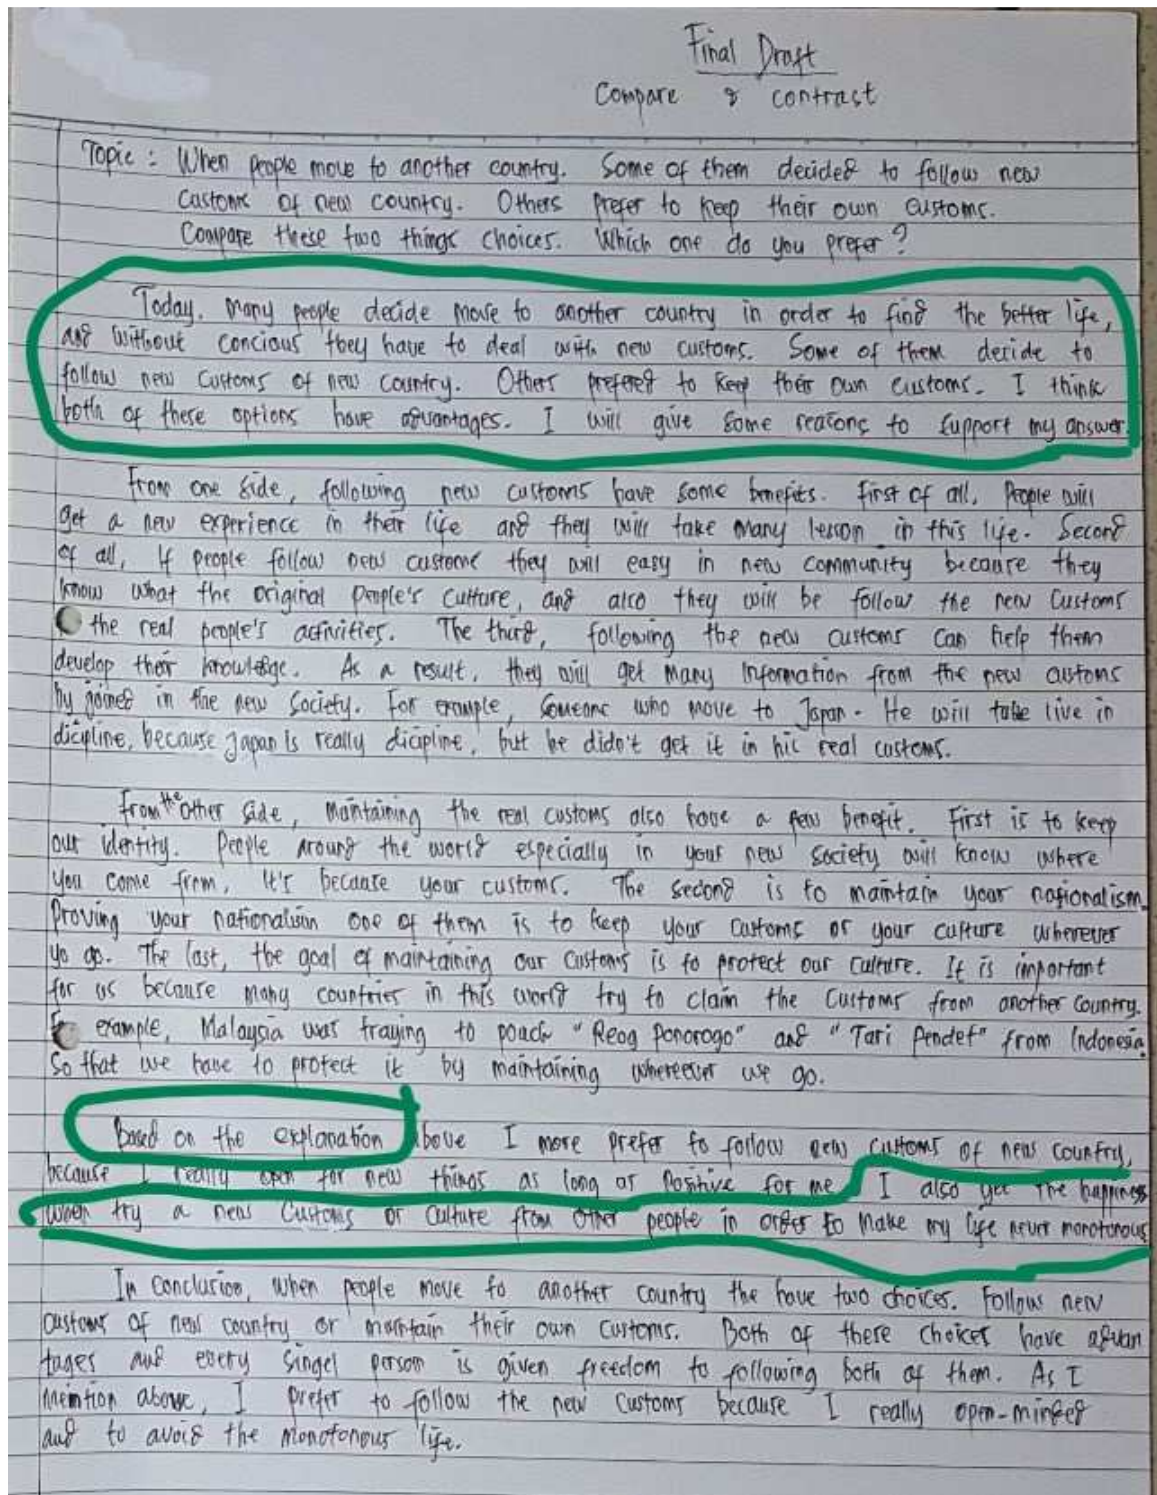 Final Draft
Compare & contrast
Topic : When people move to another country. Some of them decided to follow new
Customs of new country. Others prefer to keep their own customs.
Compare these two things choices. Which one do you prefer?
Today, many people decide move to another country in order to find the better life,
and without concious they have to deal with new customs. Some of them decide to
follow new customs of new country. Others prefered to keep their own customs. I think
both of these options have advantages. I will give some reasons to support my answer.
From one side, following new customs have some benefits. First of all, People will
get a new experience in their life and they will take many lesson in this life. Second
of all, If people follow new custome they will easy in new community because they
know what the original people's culture, and also they will be follow the new Customs
the real people's activities. The third, following the new customs can help them
develop their knowledge. As a result, they will get many information from the new customs
by joined in the new society. For example, Someone who move to Japan. He will take live in
dicipline, because Japan is really dicipline, but he didn't get it in his real customs.
From the other side, maintaining the real customs also have a few benefit. First is to keep
our identity. People around the world especially in your new society will know where
you come from, It's because your customs. The second is to maintain your nationalism.
Proving your nationalism one of them is to keep your customs or your culture wherever
yo go. The last, the goal of maintaining our customs is to protect our culture. It is important
for us because many countries in this world try to claim the customs from another country.
example, Malaysia was traying to poach "Reog Ponorogo" and "Tari Pendet" from Indonesia.
So that we have to protect it by maintaining whereever we go.
Based on the explanation above I more prefer to follow new customs of new country,
because I really open for new things as long as positive for me. I also get the happiness
when try a new customs or culture from other people in order to make my life never monotonous
In conclusion, when people move to another country the have two choices. Follow new
customs of new country or maintain their own customs. Both of these choices have advan
tages and every singel person is given freedom to following both of them. As I
mention above, I prefer to follow the new customs because I really open-minded
and to avoid the monotonous life.